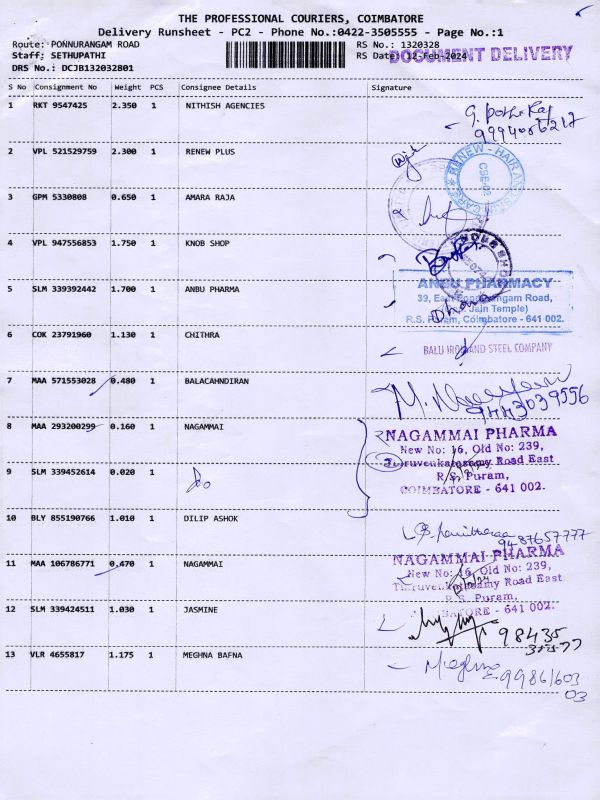 THE PROFESSIONAL COURIERS, COIMBATORE
Delivery Runsheet - PC2 - Phone No.:0422-3505555 - Page No.:1
Route: PONNURANGAM ROAD
Staff: SETHUPATHI
DRS No.: DCJB132032801
RS No.: 1320328
RS Date: 12-Feb-2024
DOCUMENT DELIVERY
S No Consignment No Weight PCS Consignee Details Signature
1 RKT 9547425 2.350 1 NITHISH AGENCIES
2 VPL 521529759 2.300 1 RENEW PLUS
RENEW - HAIR AND SKIN CARE
CBE-02
3 GPM 5330808 0.650 1 AMARA RAJA
4 VPL 947556853 1.750 1 KNOB SHOP
5 SLM 339392442 1.700 1 ANBU PHARMACY
ANBU PHARMACY
39, East Ponnurangam Road,
Jain Temple)
R.S. Puram, Coimbatore - 641 002.
6 COK 23791960 1.130 1 CHITHRA
BALU IRON AND STEEL COMPANY
7 MAA 571553028 0.480 1 BALACAHNDIRAN
9443039556
8 MAA 293200299 0.160 1 NAGAMMAI
NAGAMMAI PHARMA
New No: 16, Old No: 239,
Thiruvenkatasamy Road East
R.S. Puram,
COIMBATORE - 641 002.
9 SLM 339452614 0.020 1 Do
10 BLY 855190766 1.010 1 DILIP ASHOK
9487657777
11 MAA 106786771 0.470 1 NAGAMMAI
NAGAMMAI PHARMA
New No: 16, Old No: 239,
Thiruvenkatasamy Road East
R.S. Puram,
COIMBATORE - 641 002.
12 SLM 339424511 1.030 1 JASMINE
98435
13 VLR 4655817 1.175 1 MEGHNA BAFNA
Meghna
99861603
03